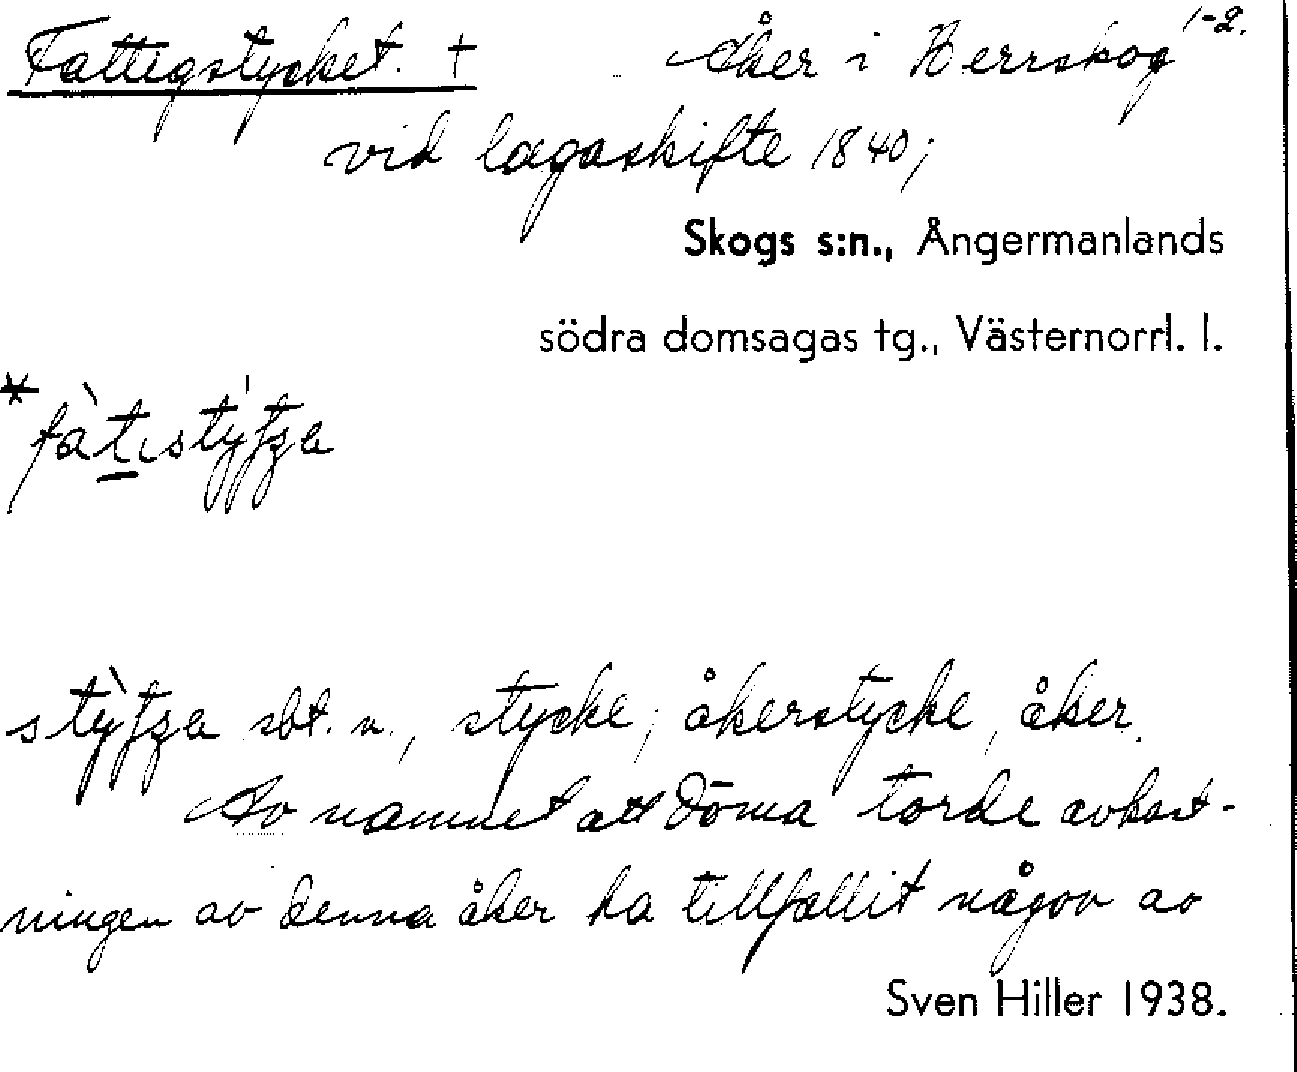 Fattigstycket. † Åker i Herrskog 1-2.
vid lagaskifte 1840;
Skogs s:n., Ångermanlands
södra domsagas tg., Västernorrl. l.
sbt. n., stycke; åkerstycke, åker.
Av namnet att döma torde avkast-
ningen av denna åker ha tillfallit någon av
Sven Hiller 1938.